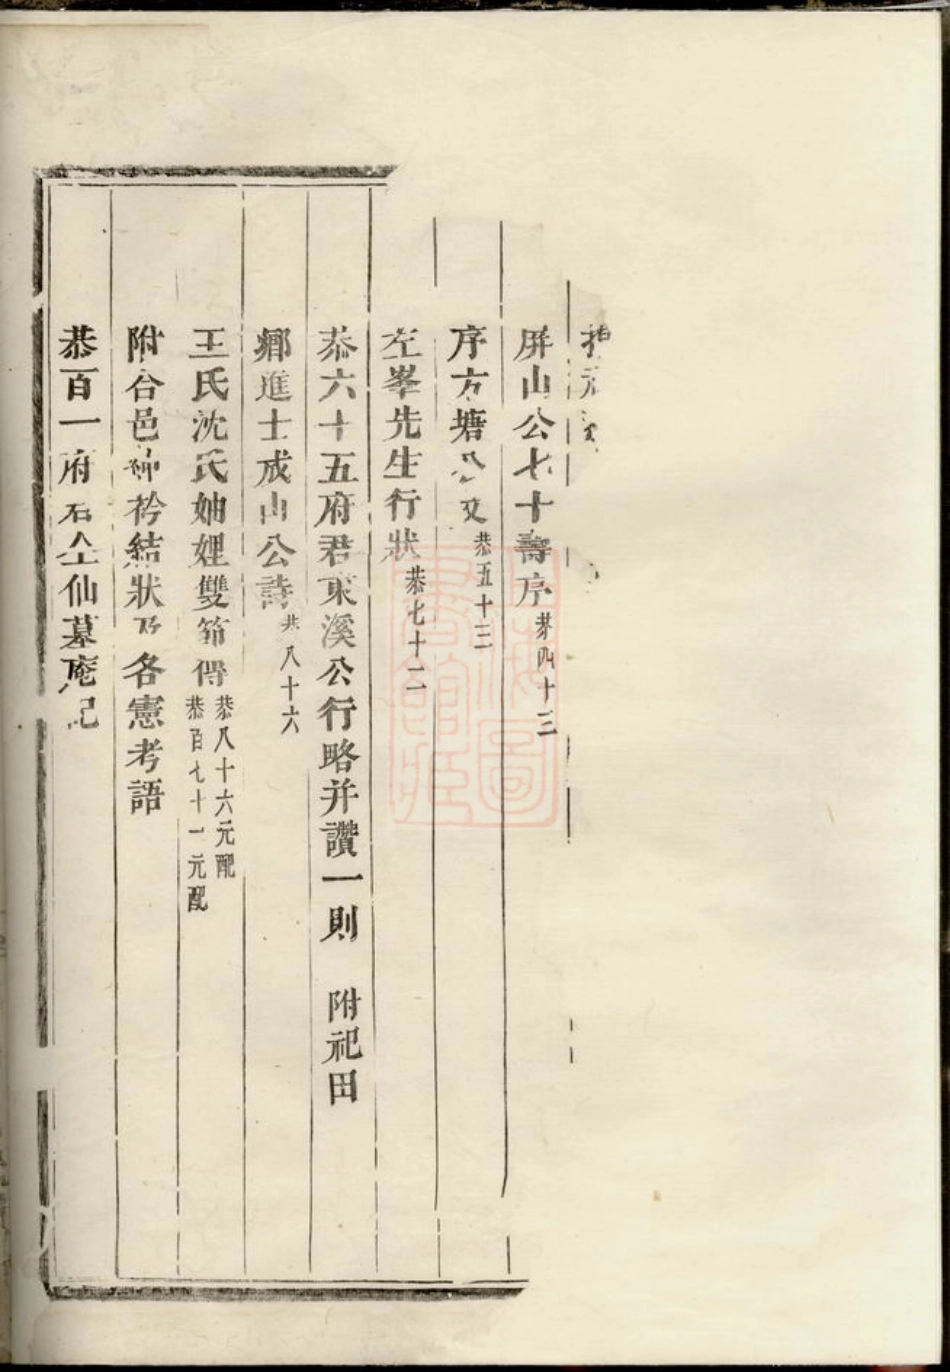 屏山公七十壽序 恭四十三
序方塘公文 恭五十三
左峯先生行狀 恭七十二
恭六十五府君東溪公行略并讚一則 附祀田
鄉進士成山公詩 恭八十六
王氏沈氏妯娌雙節傳 恭八十六元配 恭百七十一元配
附合邑紳衿結狀及各憲考語
恭百一府君仝仙墓庵記
上海圖書館藏